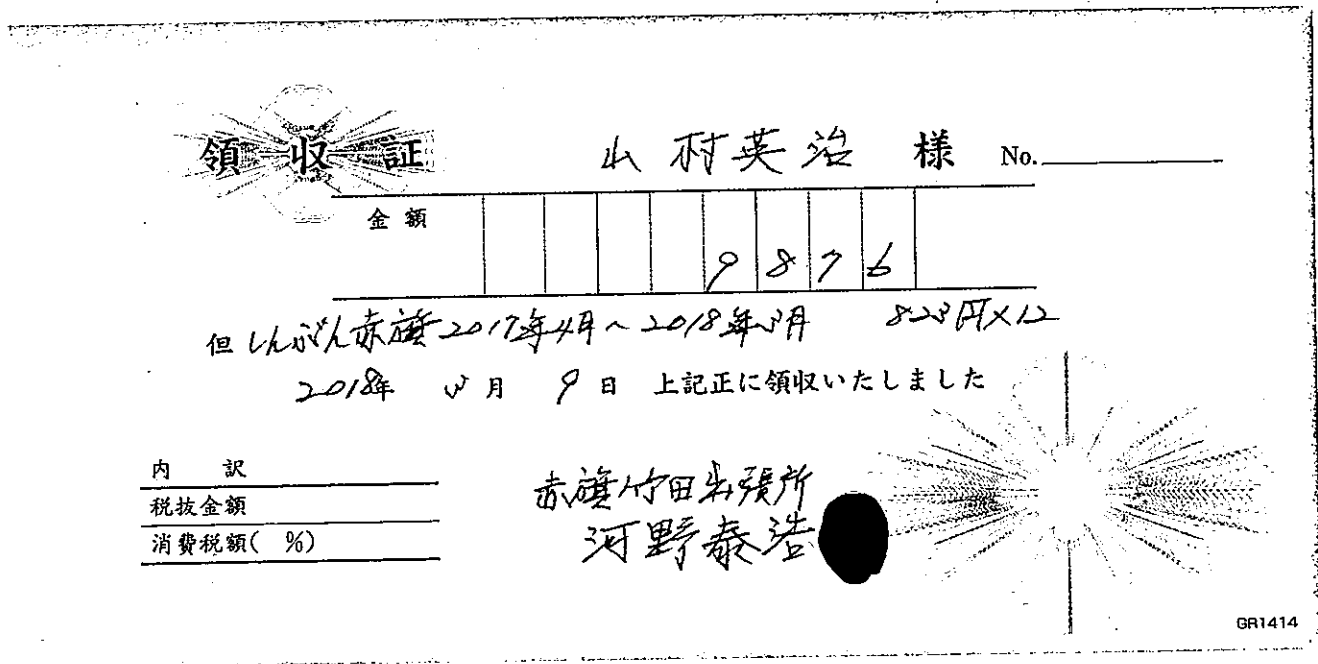 領収証
山村英治 様 No.
金額 9876
但 しんぶん赤旗2017年4月～2018年3月 823円×12
2018年 3月 9日 上記正に領収いたしました
内 訳
税抜金額
消費税額( %)
赤旗竹田出張所
河野泰浩
GR1414